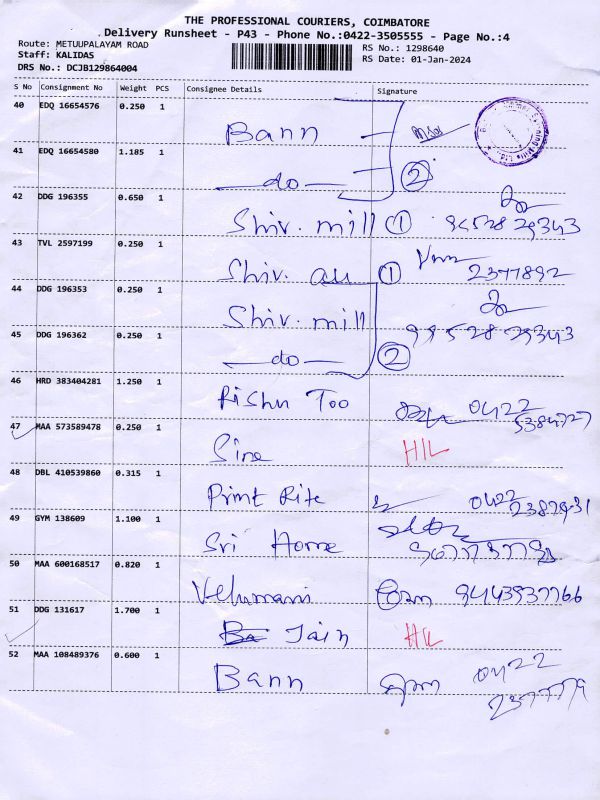 THE PROFESSIONAL COURIERS, COIMBATORE
Delivery Runsheet - P43 - Phone No.:0422-3505555 - Page No.:4
Route: METUUPALAYAM ROAD
Staff: KALIDAS
DRS No.: DCJB129864004
RS No.: 1298640
RS Date: 01-Jan-2024
S No Consignment No Weight PCS Consignee Details Signature
40 EDQ 16654576 0.250 1
Bann
41 EDQ 16654580 1.185 1
do 2
42 DDG 196355 0.650 1
Shiv. mill 1
43 TVL 2597199 0.250 1
Shiv. au 1 2377892
44 DDG 196353 0.250 1
Shiv. mill
45 DDG 196362 0.250 1
do 2
46 HRD 383404281 1.250 1
Rishu Too 0422
47 MAA 573589478 0.250 1
Sine H/L
48 DBL 410539860 0.315 1
Print Rite 0422
49 GYM 138609 1.100 1
Sri Home
50 MAA 600168517 0.820 1
Velumani
51 DDG 131617 1.700 1
Jain H/L
52 MAA 108489376 0.600 1
Bann 0422